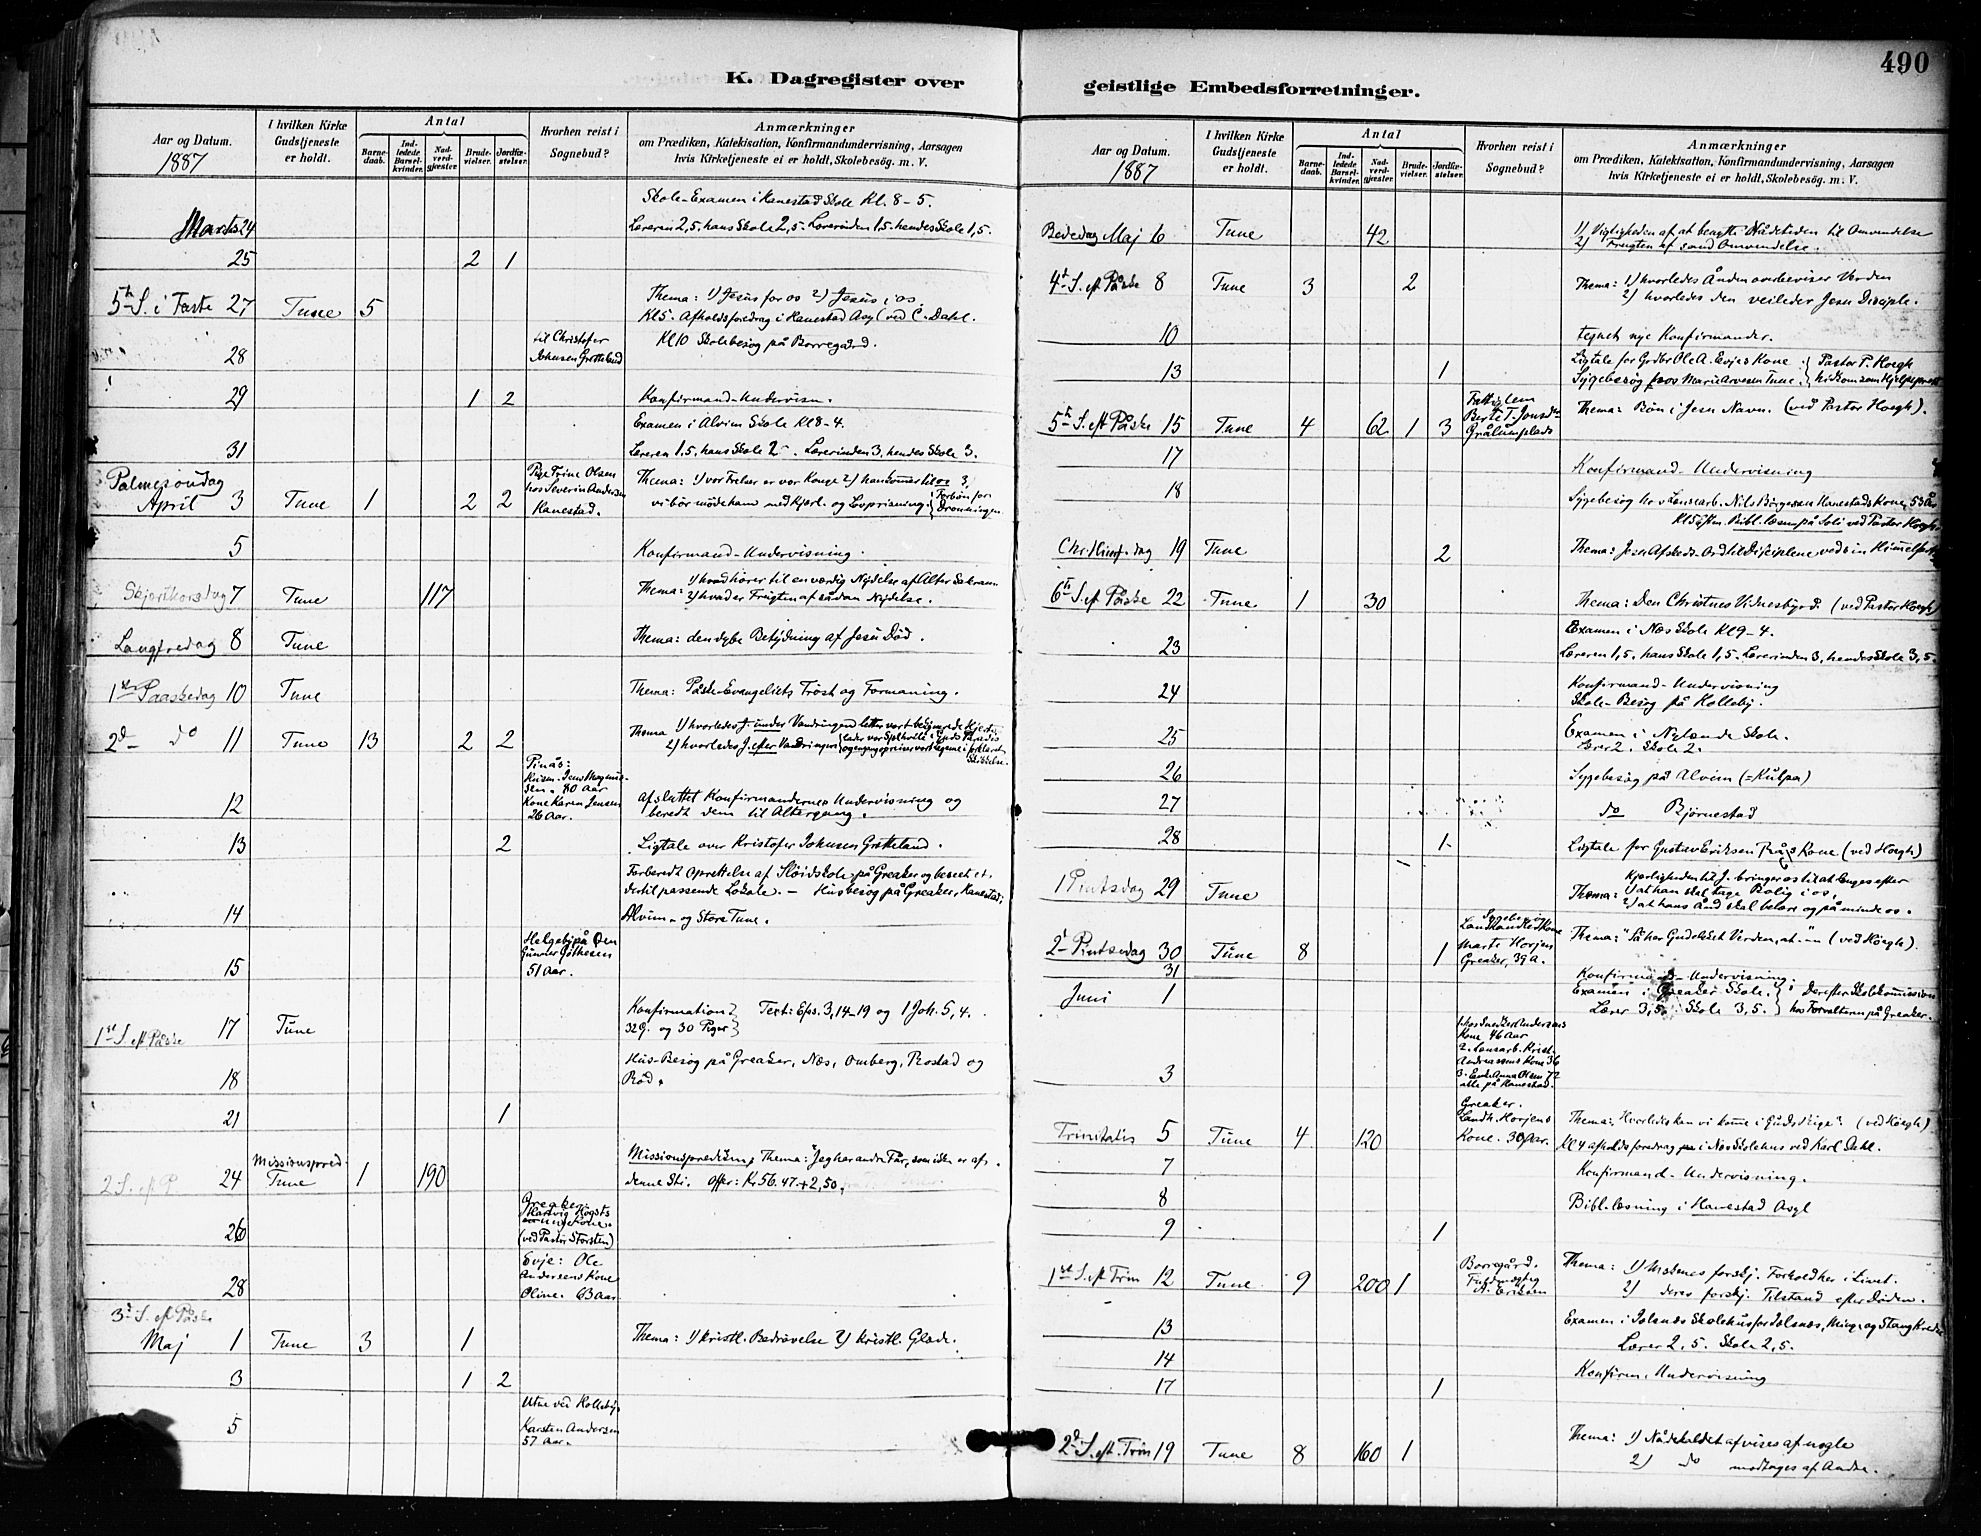 490
K. Dagregister over
Aar og Datum.
1887
I hvilken Kirke
Gudstjeneste
er holdt.
Antal
Barne-
daab.
Ind-
ledede
Barsel-
kvinder.
Nad-
verd-
gjæster.
Brude-
vielser.
Jordfæ-
stelser.
Hvorhen reist i
Sognebud?
Anmærkninger
om Prædiken, Katekisation, Konfirmandundervisning, Aarsagen
hvis Kirketjeneste ei er holdt, Skolebesøg. m. V.
Skole-Examen i Hanestad Skole Kl. 8-5.
Marts 24 Læreren 2,5. hans Skole 2,5. Lærerinden 1,5. hendes Skole 1,5.
25 2 1
5te S. i Faste 27 Tune 5 Thema: 1) Jesus for os 2) Jesus i os.
Kl 5. Afholdsforedrag i Hanestad Asyl (ved C. Dahl.
28 til Christofer Kl 10 Skolebesøg på Borregaard.
Johnsen Grøtteland
29 1 2 Konfirmand-Undervisn.
Examen i Alvim Skole Kl 8-4.
31 Læreren 1,5. hans Skole 2. Lærerinden 3, hendes Skole 3.
Palmesøndag
April 3 Tune 1 2 2 Pige Trine Olsen
hos Severin Andersen
Hanestad.
Thema: 1) vor Frelser er vor Konge 2) han kommer til os 3,
vi bør møde ham med Kjærl. og Lovprisning. Forbøn for
Dronningen
5 Konfirmand-Undervisning.
Skjærthorsdag 7 Tune 117 Thema: 1) hvad hører til en værdig Nydelse af Alter Sakram.
2) hvad er Frugten af sådan Nydelse.
Langfredag 8 Tune Thema: den dybe Betydning af Jesu Død.
1ste Paaskedag 10 Tune Thema: Påske-Evangeliets Trøst og Formaning.
2d do 11 Tune 13 2 2 Thema 1) hvorledes J. under Vandringen letter vort besværede Hjerte
2) hvorledes J. efter Vandringen
12 Afsluttet Konfirmandernes Undervisning og
Jens Magnus-
sen. 80 Aar
Kone Karen Jensen
26 Aar.
beredt dem til Altergang.
13 2 Ligtale over Kristofer Johnsen Grøtteland.
Forberedt Oprettelse af Sløidskole på Greaker og beseet et
dertil passende Lokale. - Husbesøg på Greaker, Hanestad,
14 Alvim og Store Tune.
15 Helgeby på Øen
Gunder
51 Aar.
1ste S. ef Påske 17 Tune Konfirmation Text: Efes. 3,14-19 og 1 Joh. 5,4.
32 G. og 30 Piger
18 Hus-Besøg på Greaker, Næs, Omberg, Rostad og
Rød.
21 1
2 S. ef P 24 Missionspred.
Tune 1 190 Missionsprediken, Thema: Jeg har andre Får, som ikke er af
denne Sti. Offer: Kr 56.47 + 2,50,
26 Greaker
Hartvig
(ved Pastor Torsten)
28 Evje: Ole
Andersens Kone
Oline. 63 Aar
3d S. ef Påske
Maj 1 Tune 3 1 Thema: 1) kristl. Bedrøvelse 2) kristl. Glæde.
3 1 2
5 Utne ved Kolleby
Karsten Andersen
57 Aar.
geistlige Embedsforretninger.
Aar og Datum.
1887
I hvilken Kirke
Gudstjeneste
er holdt.
Antal
Barne-
daab.
Ind-
ledede
Barsel-
kvinder.
Nad-
verd-
gjæster.
Brude-
vielser.
Jordfæ-
stelser.
Hvorhen reist i
Sognebud?
Anmærkninger
om Prædiken, Katekisation, Konfirmandundervisning, Aarsagen
hvis Kirketjeneste ei er holdt, Skolebesøg. m. V.
Bededag Maj 6 Tune 42 1) Vigtigheden af at benytte Nådetiden til Omvendelse
2) Frugten af sand Omvendelse.
4d S. ef Påske 8 Tune 3 2 Thema: 1) hvorledes Ånden overbeviser Verden
2) hvorledes den veileder Jesu Disciple.
10 tegnet nye Konfirmander.
13 1 Ligtale for Grdbr Ole A. Evjes Kone Pastor P. Høegh
Sygebesøg hos Marie Arvesen Tune. hidkom som Hjelpeprest
5te S. ef Påske 15 Tune 4 62 1 3 Fattiglem
Berte T. Jonsdtr
Grålumplads
Thema: Bøn i Jesu Navn. (ved Pastor Høegh).
17 Konfirmand-Undervisning
18 Sygebesøg Nils Børgesen Hanestads Kone, 53 År
Bibl. læsn. på Soli ved Pastor Høegh
Chr. Himf. dag 19 Tune 2 Thema: Jesu Afskeds-Ord til Disciplene ved sin Himmelfart
6te S. ef Påske 22 Tune 1 30 Thema: Den Christnes Vidnesbyrd. (ved Pastor Høegh)
Examen i Næs Skole Kl 9-4.
23 Læreren 1,5. hans Skole 1,5. Lærerinden 3, hendes Skole 3,5.
24 Konfirmand-Undervisning
Skole-Besøg på Kolleby.
25 Examen i Nylænde Skole.
Lærer 2. Skole 2.
26 Sygebesøg på Alvim (=Kulpa)
27 do Bjørnestad
28 1 Ligtale for Gustav Eriksen Råds Kone (ved Høegh)
1 Pintsdag 29 Tune Kjærligheden til J. bringer os til at længes efter
Thema: 1) at han skal tage Bolig i os.
2) at hans Ånd skal belære og påminde os.
2d Pintsedag 30 Tune 8 1 Sygebesøg
Landhandler Kone
Marte Horjen
Greaker, 39 A.
Thema: "Så har Gud elsket Verden, at -" (ved Høegh).
31 Konfirmand-Undervisning.
Juni 1 Examen i Greaker Skole. Derefter Skolekommission
Lærer 3,5. Skole 3,5. hos Forvalteren på Greaker.
3 1. hos Snedker Andersens
Kone 46 Aar
2. Løsarb. Krist.
Andreassens Kone 36
3. Enke Anna Olsen 72
alle på Hanestad.
Trinitatis 5 Tune 4 120 Greaker.
Landh. Horjens
Kone. 39 Aar.
Thema: Hvorledes kan vi komme i Guds Rige? (ved Høegh)
Kl 4 afholdsforedrag i Næs Skolehus ved Karl Dahl.
7 Konfirmand-Undervisning.
8 Bibl. læsning i Hanestad Asyl
9 1
1ste S. ef Trin 12 Tune. 9 200 1 Borregård.
Fuldmægtig
A. Eriksen
Thema: 1) Menes forskj. Forhold her i Livet.
2) deres forskj. Tilstand efter Døden.
13 Examen i Jelsnæs Skolehus for Jelsnæs, Minge og Stang Kredse
Lærer 2,5. Skole 2,5.
14 Konfirm. Undervisning
17 1
2d S. ef. Trin 19 Tune 8 160 1 Thema: 1) Nådekaldet afvises af nogle
2) do modtages af Andre.